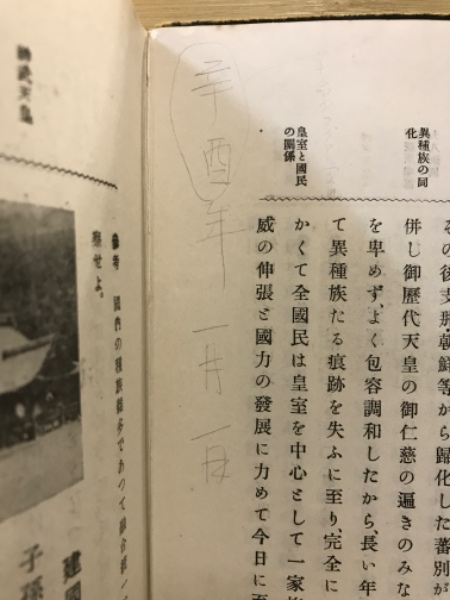 異種族の同
化
皇室と國民
の關係
る の後支那・朝鮮等から歸化した蕃別が
併し御歷代天皇の御仁慈の遍きのみな
を卑めず、よく包容調和したから、長い年
て異種族たる痕跡を失ふに至り、完全に
かくて全國民は皇室を中心として一家
威の伸張と國力の發展に力めて今日に
辛酉年 一月一日
神武天皇
參考 國內の種族
察せよ。
建國
子孫